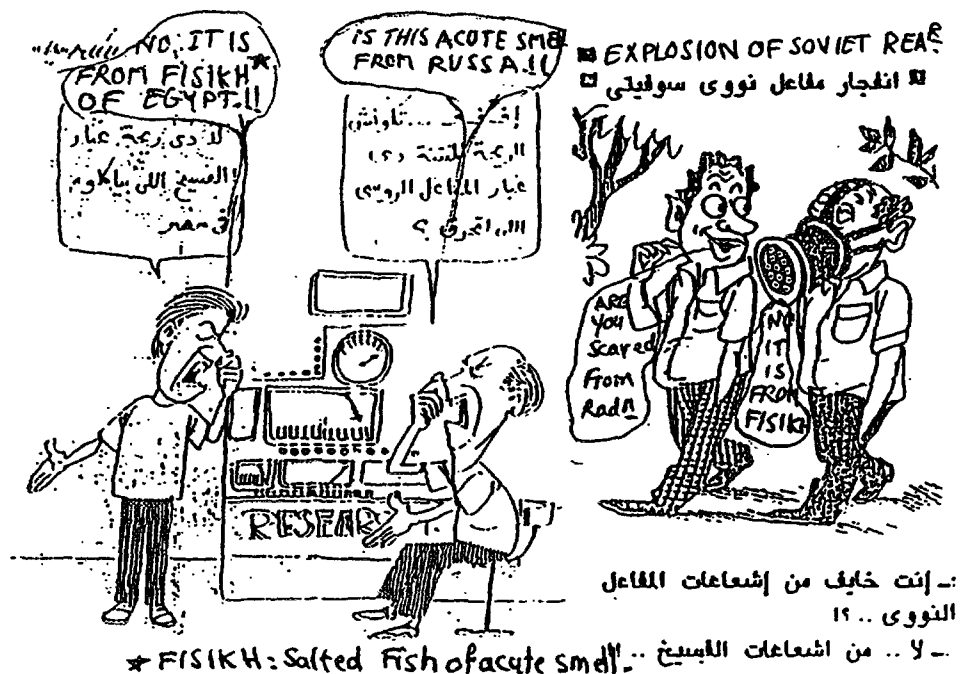 NO, IT IS
FROM FISIKH*
OF EGYPT.!!
لأ دى ريحة غبار
الفسيخ اللى بياكلوه
فى مصر
IS THIS ACUTE SMEL
FROM RUSSA.!!
الريحة المنتنة دى
غبار المفاعل الروسى
اللى اتحرق ؟
EXPLOSION OF SOVIET REA
انفجار مفاعل نووى سوفيتى
ARE
YOU
Scared
From
Rad!!
NO
IT
IS
FROM
FISIKH
RESEAR
:ـ إنت خايف من إشعاعات المفاعل
النووى .. ؟!
ـ لا .. من اشعاعات الفسيخ .. !!
* FISIKH: Salted Fish of acute smell-